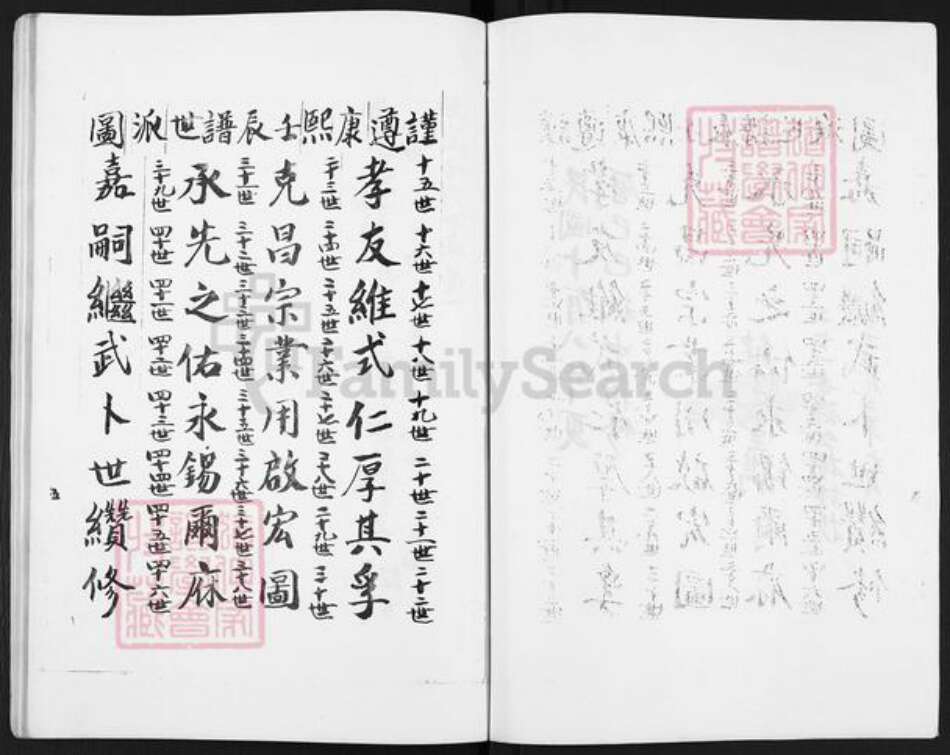 謹遵康熙壬辰譜世派圖
十五世 十六世 十七世 十八世 十九世 二十世 二十一世 二十二世
孝友維式仁厚其孚
二十三世 二十四世 二十五世 二十六世 二十七世 二十八世 二十九世 三十世
克昌宗業用啟宏圖
三十一世 三十二世 三十三世 三十四世 三十五世 三十六世 三十七世 三十八世
承先之佑永錫爾庥
三十九世 四十世 四十一世 四十二世 四十三世 四十四世 四十五世 四十六世
嘉嗣繼武卜世纘修
五
FamilySearch